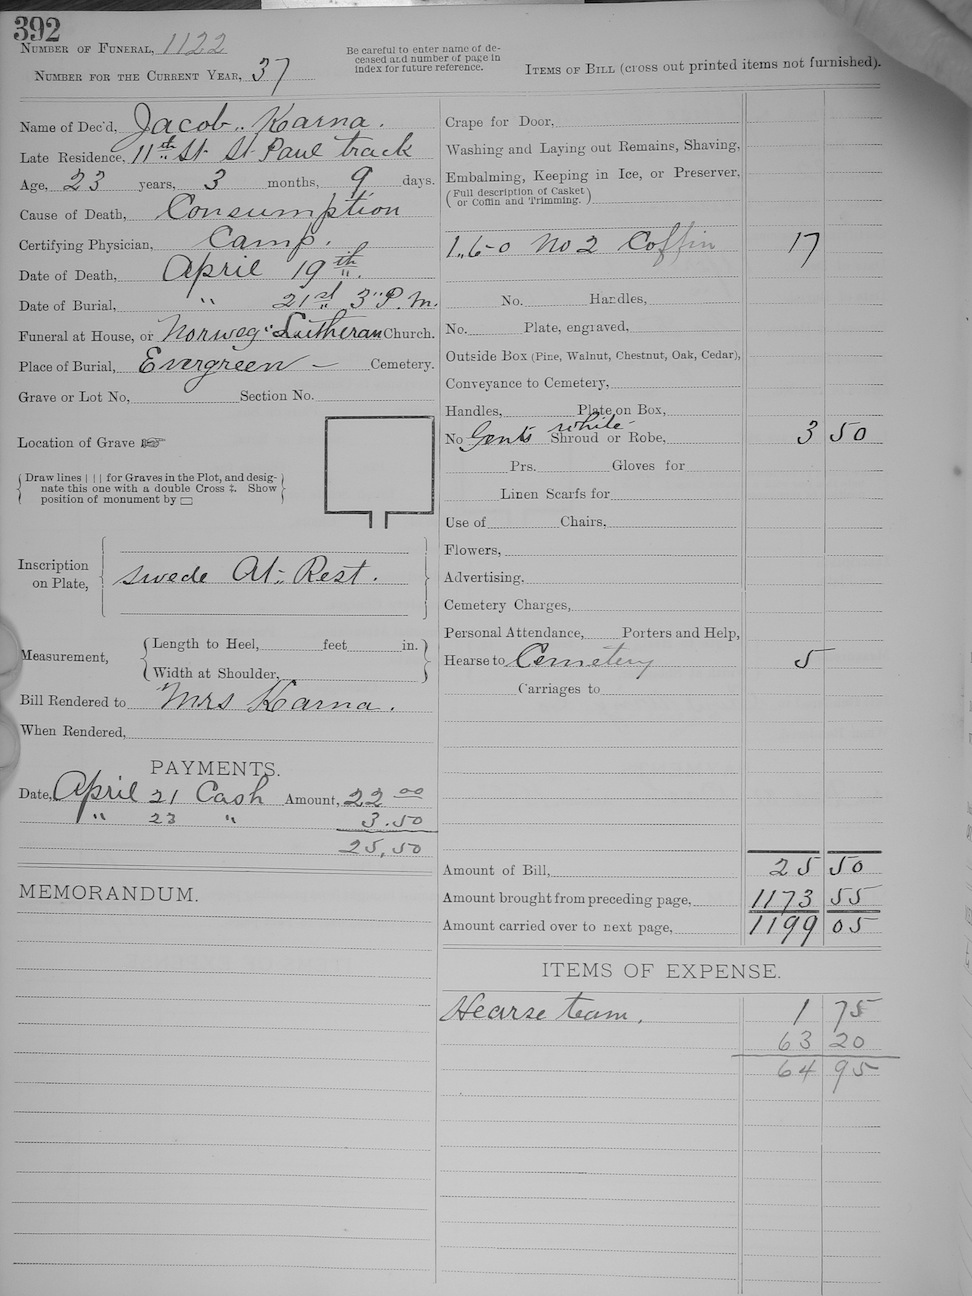 392
NUMBER OF FUNERAL, 1122
NUMBER FOR THE CURRENT YEAR, 37
Be careful to enter name of de-
ceased and number of page in
index for future reference.
ITEMS OF BILL (cross out printed items not furnished).
Name of Dec'd, Jacob Karna.
Late Residence, 11th St St Paul track
Age, 23 years, 3 months, 9 days.
Cause of Death, Consumption
Certifying Physician, Camp.
Date of Death, April 19th.
Date of Burial, " 21st 3 P.M.
Funeral at House, or Norweg Lutheran Church.
Place of Burial, Evergreen — Cemetery.
Grave or Lot No, Section No.
Location of Grave ☞
Draw lines | | | for Graves in the Plot, and desig-
nate this one with a double Cross ‡. Show
position of monument by ▭
Inscription
on Plate,
swede At Rest.
Measurement,
Length to Heel, feet in.
Width at Shoulder,
Bill Rendered to Mrs Karna.
When Rendered,
PAYMENTS.
Date, April 21 Cash Amount, 22 00
" 23 " 3.50
25,50
MEMORANDUM.
Crape for Door,
Washing and Laying out Remains, Shaving,
Embalming, Keeping in Ice, or Preserver,
(Full description of Casket
or Coffin and Trimming.)
1,60 No 2 Coffin 17
No. Handles,
No. Plate, engraved,
Outside Box (Pine, Walnut, Chestnut, Oak, Cedar),
Conveyance to Cemetery,
Handles, Plate on Box,
white
No Gents Shroud or Robe, 3 50
Prs. Gloves for
Linen Scarfs for
Use of Chairs,
Flowers,
Advertising.
Cemetery Charges,
Personal Attendance, Porters and Help,
Hearse to Cemetery 5
Carriages to
Amount of Bill, 25 50
Amount brought from preceding page, 1173 55
Amount carried over to next page, 1199 05
ITEMS OF EXPENSE.
Hearse team, 1 75
63 20
64 95